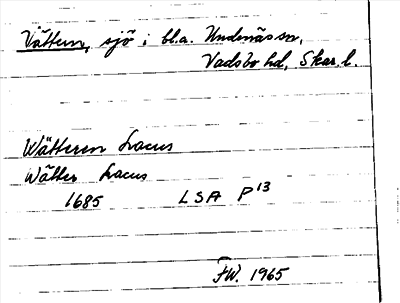 Vättern, sjö i bl.a. Undenäs sn,
Vadsbo hd, Skar. l.
Wätteren Lacus
Wätter Lacus
1685 LSA P13
FW. 1965